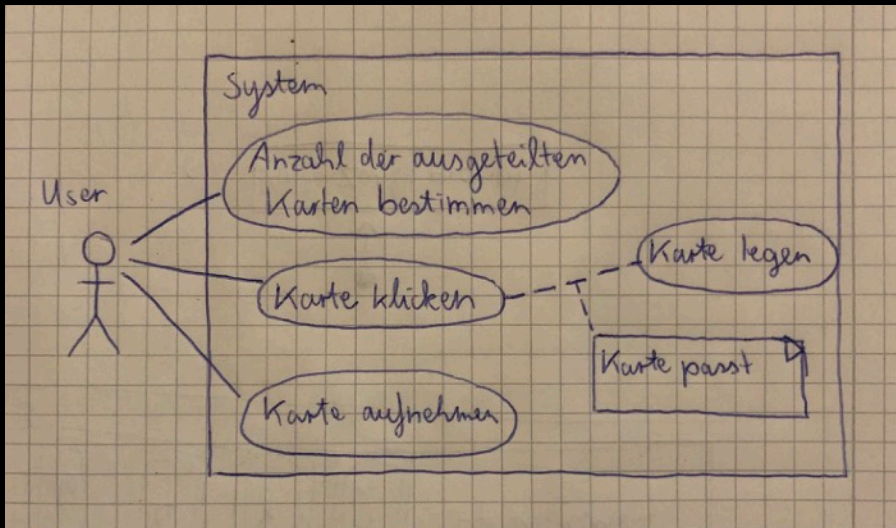 System
User
Anzahl der ausgeteilten
Karten bestimmen
Karte klicken
Karte legen
Karte passt
Karte aufnehmen